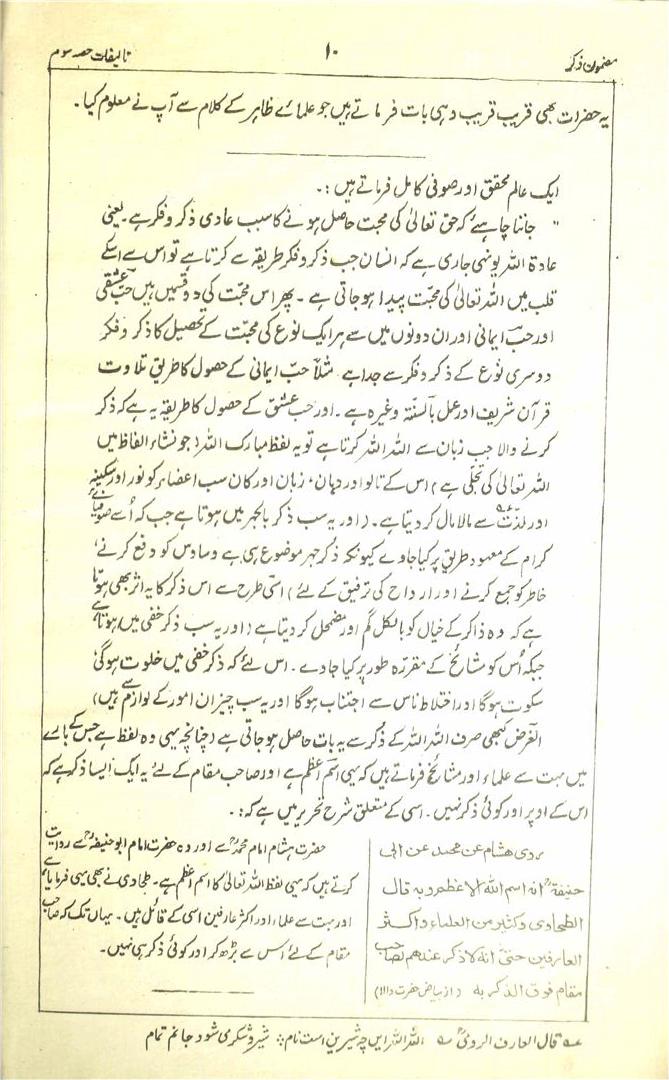 مضمون ذکر
۱۰
تالیفات حصہ سوم
یہ حضرات بھی قریب قریب وہی بات فرماتے ہیں جو علمائے ظاہر کے کلام سے آپ نے معلوم کیا۔
ایک عالم محقق اور صوفی کامل فرماتے ہیں :۔
" جاننا چاہئے کہ حق تعالیٰ کی محبت حاصل ہونے کا سبب عادی ذکر و فکر ہے۔ یعنی
عادۃ اللہ یونہی جاری ہے کہ انسان جب ذکر و فکر طریقہ سے کرتا ہے تو اس سے اسکے
قلب میں اللہ تعالیٰ کی محبت پیدا ہو جاتی ہے ۔ پھر اس محبت کی دو قسمیں ہیں حبّ عشقی
اور حبّ ایمانی اور ان دونوں میں سے ہر ایک نوع کی محبت کے تحصیل کا ذکر و فکر
دوسری نوع کے ذکر و فکر سے جدا ہے مثلاً حبّ ایمانی کے حصول کا طریق تلاوت
قرآن شریف اور عمل بالسنۃ وغیرہ ہے ۔ اور حب عشقی کے حصول کا طریقہ یہ ہے کہ ذکر
کرنے والا جب زبان سے اللہ اللہ کرتا ہے تو یہ لفظ مبارک اللہ (جو نشاء الفاظ میں
اللہ تعالیٰ کی تجلّی ہے) اس کے تالو اور دہان، زبان اور کان سب اعضاء کو نور اور سکینہ
اور لذّت سے مالا مال کر دیتا ہے۔ (اور یہ سب ذکر بالجہر میں ہوتا ہے جب کہ اُسے صوفیائے
کرام کے معہود طریق پر کیا جاوے کیونکہ ذکر جہر موضوع ہی ہے وساوس کو دفع کرنے،
خاطر کو جمع کرنے اور ارواح کی ترقیق کے لئے) اسی طرح سے اس ذکر کا یہ اثر بھی ہوتا
ہے کہ وہ ذاکر کے خیال کو بالکل گم اور مضمحل کر دیتا ہے (اور یہ سب ذکر خفی میں ہوتا ہے
جبکہ اُس کو مشائخ کے مقررہ طور پر کیا جاوے۔ اس لئے کہ ذکر خفی میں خلوت ہوگی
سکوت ہوگا اور اختلاط ناس سے اجتناب ہوگا اور یہ سب چیزیں ان امور کے لوازم سے ہیں)
الغرض کبھی صرف اللہ اللہ کے ذکر سے یہ بات حاصل ہو جاتی ہے (چنانچہ یہی وہ لفظ ہے جس کے بارے
میں بہت سے علماء اور مشائخ فرماتے ہیں کہ یہی اسم اعظم ہے اور صاحب مقام کے لئے یہ ایک ایسا ذکر ہے کہ
اس کے اوپر اور کوئی ذکر نہیں۔ اسی کے متعلق شرح تحریر میں ہے کہ:۔
روی هشام عن محمد عن ابی
حنیفة انه اسم الله الاعظم وبه قال
الطحاوی وکثیر من العلماء واکثر
العارفین حتی انه لا ذکر عندهم لصاحب
مقام فوق الذکر به (از بیاض حضرت والا)
حضرت ہشام امام محمدؒ سے اور وہ حضرت امام ابو حنیفہؒ سے روایت
کرتے ہیں کہ یہی لفظ اللہ تعالیٰ کا اسم اعظم ہے۔ طحاوی نے بھی یہی فرمایا ہے
اور بہت سے علماء اور اکثر عارفین اسی کے قائل ہیں۔ یہاں تک کہ صاحب
مقام کے لئے اس سے بڑھ کر اور کوئی ذکر ہی نہیں۔
قال العارف الرومیؒ اللہ اللہ ایں چہ شیرین است نام ؞ شیر و شکر می شود جانم تمام